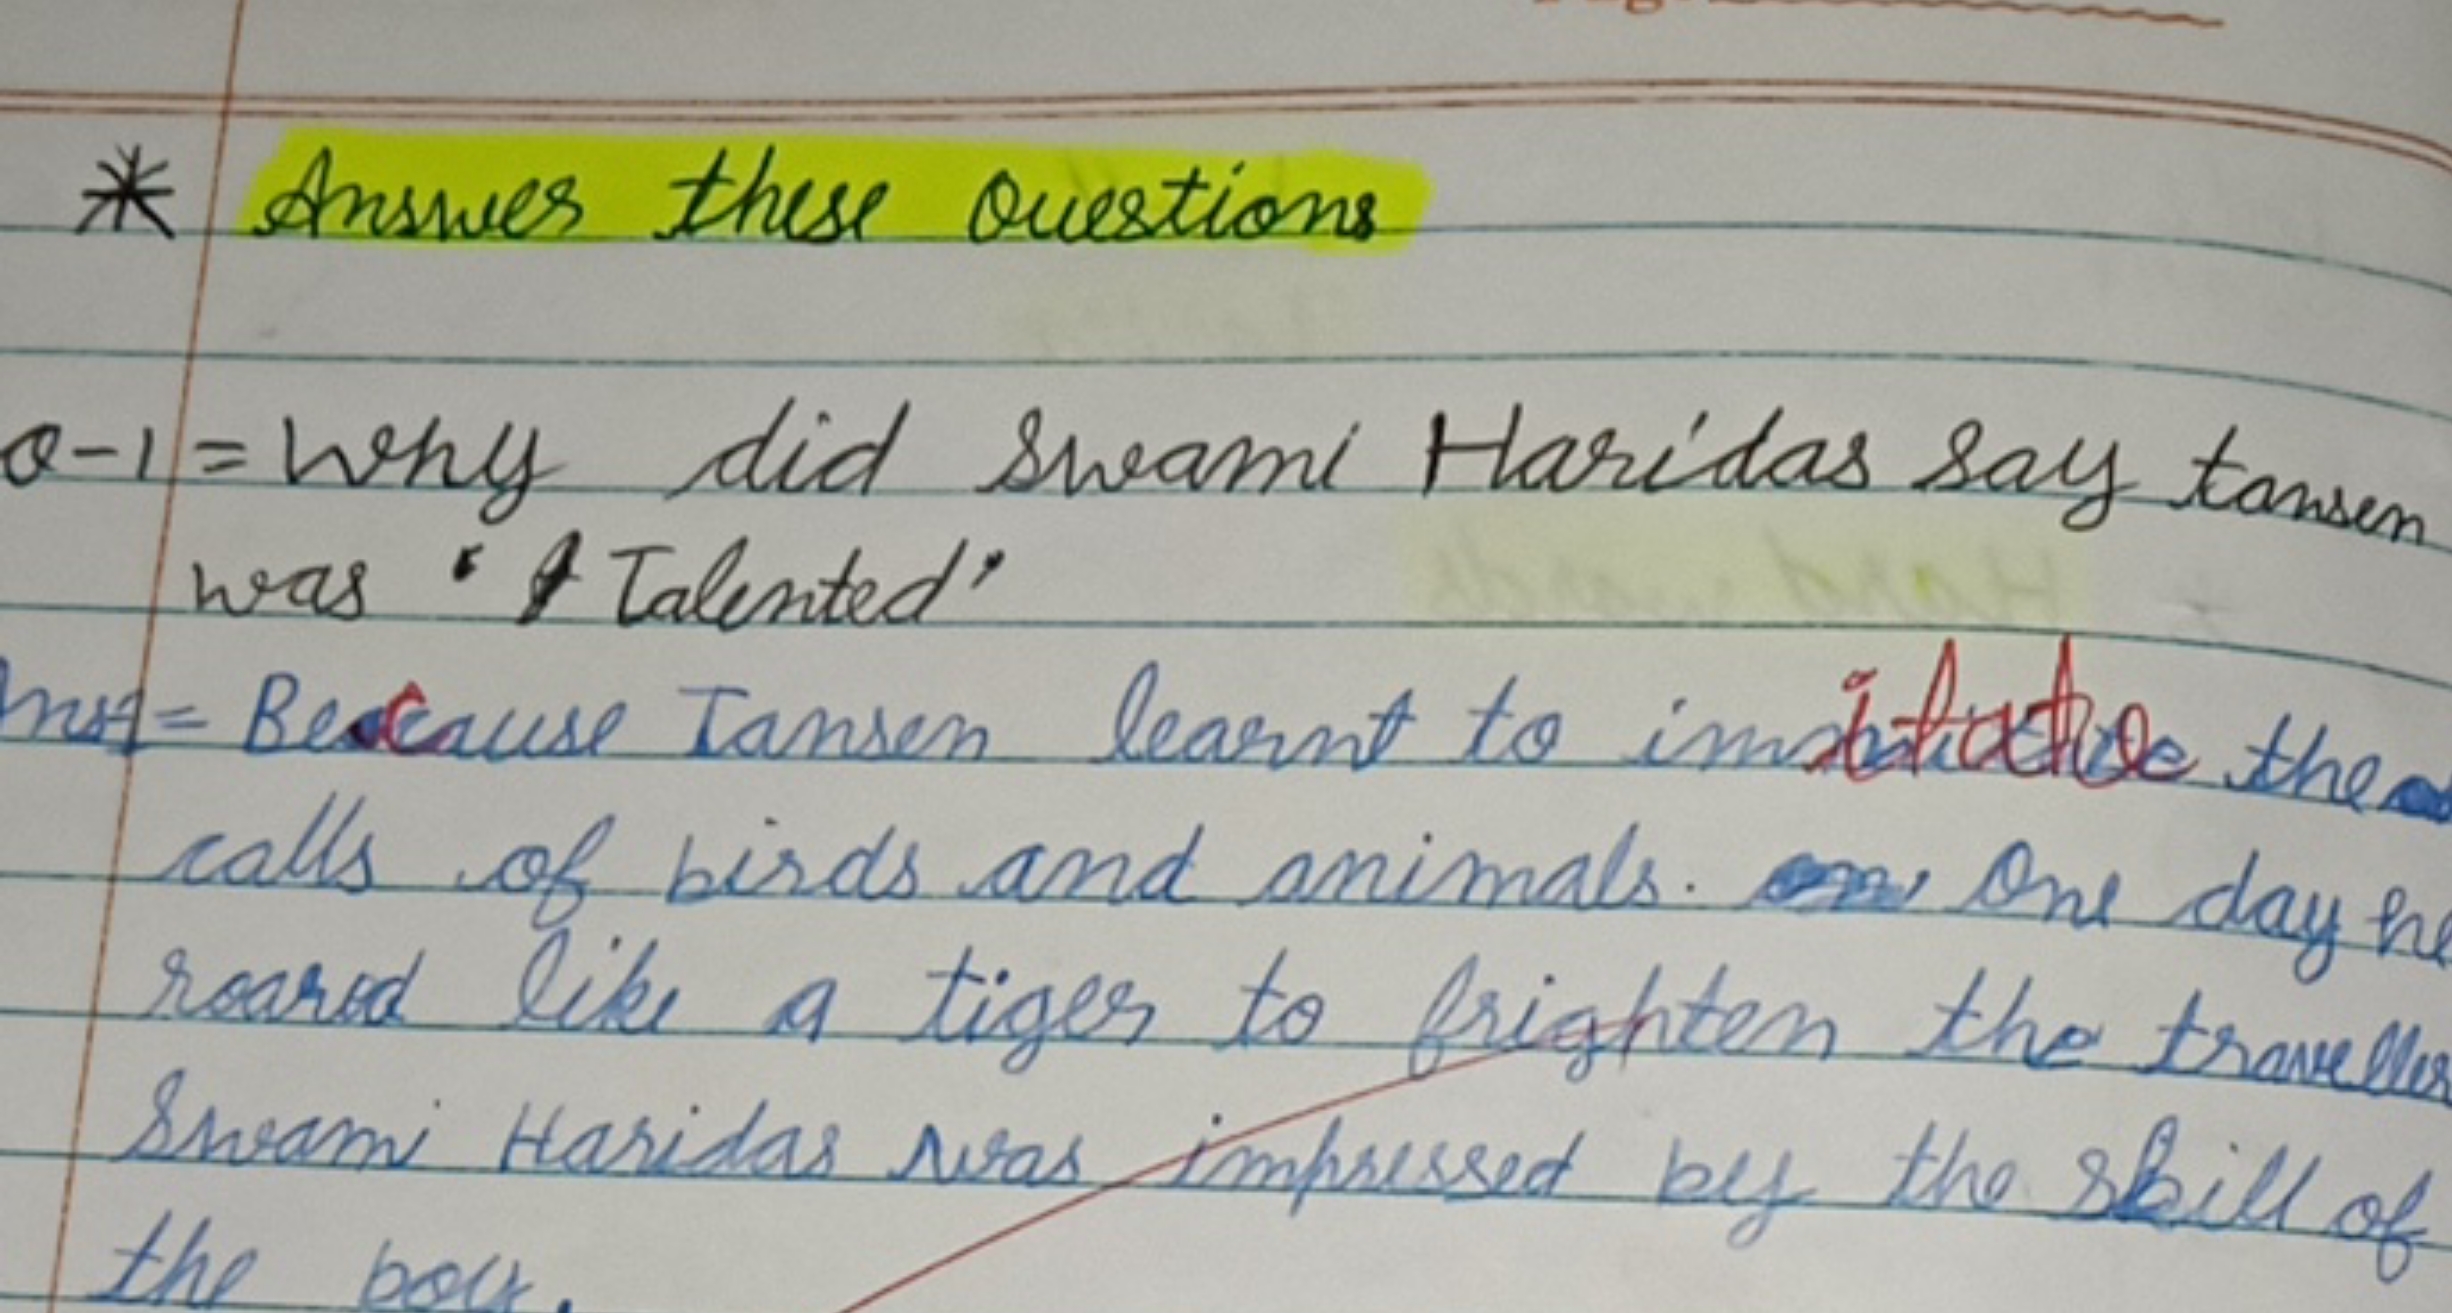 * Answer these Questions
Q-1 = Why did Swami Haridas say tansen
was ' Talented'
Ans = Because Tansen learnt to imitate the
calls of birds and animals. One day he
roared like a tiger to frighten the traveller
Swami Haridas was impressed by the skill of
the boy.